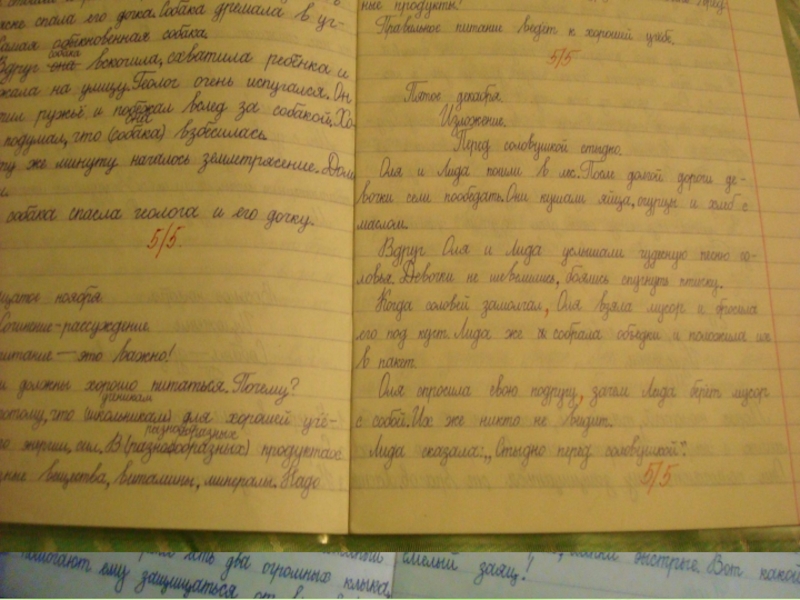 спала его дочка. Собака дремала в уг-
самая обыкновенная собака.
собака
Вдруг она вскочила, схватила ребёнка и
жала на улицу. Геолог очень испугался. Он
тил ружьё и побежал вслед за собакой. Хо-
она
подумал, что (собака) взбесилась.
ту же минуту началось землетрясение. Дом
собака спасла геолога и его дочку.
5/5.
дцатое ноября.
Сочинение-рассуждение.
питание — это важно!
должны хорошо питаться. Почему?
ученикам
потому, что (школьникам) для хорошей учё-
разнообразных
жории, сил. В (разнообразных) продуктах
вещества, витамины, минералы. Надо
ные продукты!
Правильное питание ведёт к хорошей учёбе.
5/5
Пятое декабря.
Изложение.
Перед соловушкой стыдно.
Оля и Лида пошли в лес. После долгой дороги де-
вочки сели пообедать. Они кушали яйца, огурцы и хлеб с
маслом.
Вдруг Оля и Лида услышали чудесную песню со-
ловья. Девочки не шевелились, боялись спугнуть птичку.
Когда соловей замолчал, Оля взяла мусор и бросила
его под куст. Лида же собрала объедки и положила их
в пакет.
Оля спросила свою подругу, зачем Лида берёт мусор
с собой. Их же никто не видит.
Лида сказала: „Стыдно перед соловушкой".
5/5
два огромных клыка.
помогают ему защищаться от
смелый заяц!
быстрые. Вот какой